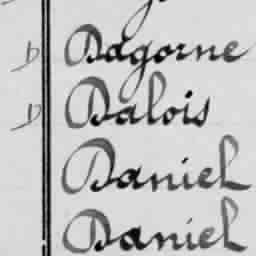 D Dagorne
D Dalois
Daniel
Daniel